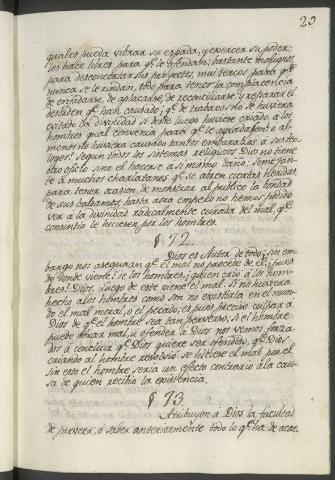 23
quales pueda vibrar su espada, y exercer su poder;
les hace libres para qe. le ofendan; bastante malignos,
para desconcertar sus proyectos, mui tercos para qe.
nunca se le rindan, todo para tener la complacencia
de enfadarse, de aplacarse, de reconciliarse y reparar el
desorden qe. han causado; qe. de trabajos, no se huviera
evitado la divinidad si desde luego huviera criado a los
hombres qual convenia para qe. le agradasen o al
menos no huviera causado tantos embarazos a sus teo-
logos! Segun todos los sistemas religiosos Dios no tiene
otro oficio sino el hacerse a si mismo daño: Semejan-
te á muchos charlatanes qe. se abren cuerdas heridas,
para tener ocasion de mostrar al publico la bondad
de sus balsamos, hasta aora empero no hemos podido
ver a la divinidad radicalmente curada del mal, qe.
consintio le hiciesen por los hombres.
§ 72.
Dios es Autor de todo; sin em-
bargo nos aseguran qe. el mal no procede de el; pues
de donde viene? de los hombres; quien crió a los hom-
bres? Dios. luego de este viene el mal. Si no huviera
hecho a los hombres como son no existiria en el mun-
do el mal moral, o el pecado; es pues preciso culpar a
Dios de qe. el hombre sea tan perverso. Si el hombre
puede obrar mal, u ofender a Dios nos vemos forza-
dos á concluir qe. Dios quiere ser ofendido, qe. Dios
cuando al hombre resolvió se hiciere el mal por el
sin esto el hombre seria un efecto contrario a la cau-
sa de quien recibio la existencia.
§ 73.
Atribuyen a Dios la facultad
de preveer, o saber anteriormente todo lo qe. ha de acae-